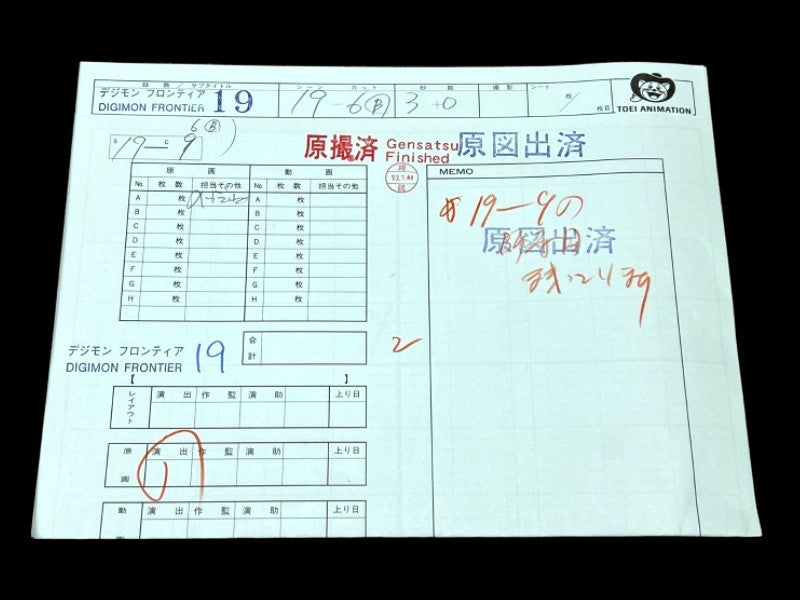 話数/サブタイトル シーン カット 秒数 撮影 シート
デジモン フロンティア
DIGIMON FRONTIER 19 19-6 B 3+0 枚/枚目
TOEI ANIMATION
6 B
S 19 — C 9
原撮済 Gensatsu Finished
原図出済
原画 動画
No. 枚数 担当その他 No. 枚数 担当その他
A 枚 A 枚
B 枚 B 枚
C 枚 C 枚
D 枚 D 枚
E 枚 E 枚
F 枚 F 枚
G 枚 G 枚
H 枚 H 枚
合計
2
デジモン フロンティア
DIGIMON FRONTIER 19
レイアウト 演出 作監 演助 上り日
原画 演出 作監 演助 上り日
動画 演出 作監 演助 上り日
MEMO
19-9の
原図出済